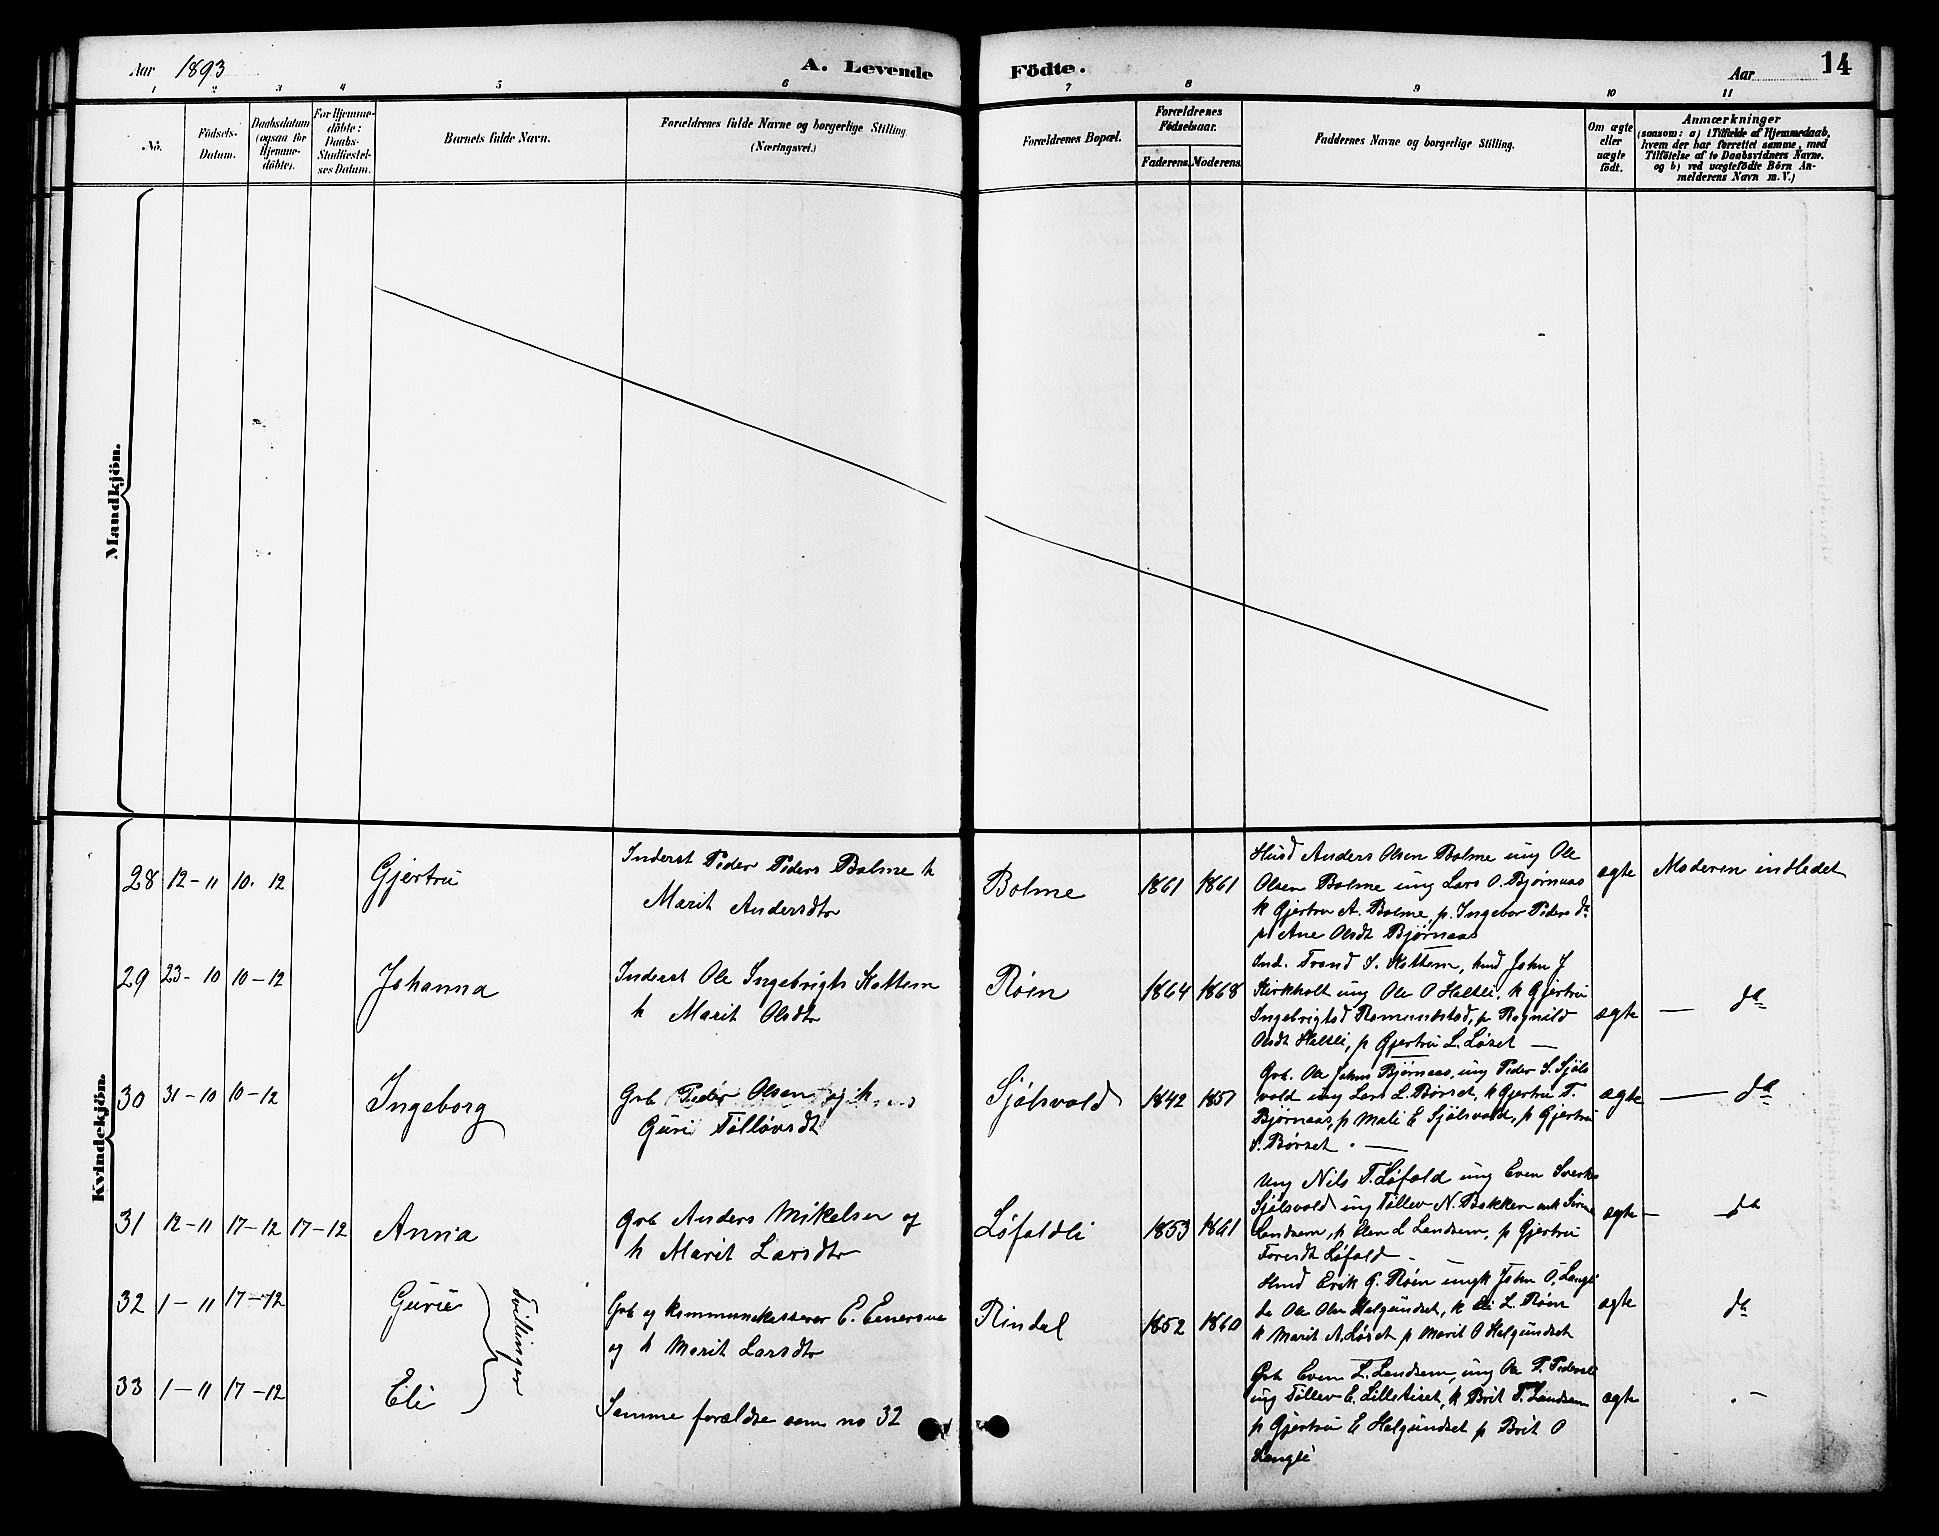 Aar 1893
A. Levende Födte.
Aar 14
1 2 3 4 5 6 7 8 9 10 11
No.
Födsels-
Datum.
Daabsdatum
(ogsaa for
Hjemme-
döbte).
For Hjemme-
döbte:
Daabs-
Stadfæstel-
ses Datum.
Barnets fulde Navn.
Forældrenes fulde Navne og borgerlige Stilling
(Næringsvei.)
Forældrenes Bopæl.
Forældrenes
Födselsaar.
Faderens. Moderens.
Faddernes Navne og borgerlige Stilling.
Om ægte
eller
uægte
födt.
Anmærkninger
(saasom: a) i Tilfælde af Hjemmedaab,
hvem der har forrettet samme, med
Tilföielse af to Daabsvidners Navne.
og b) ved uægtefödte Börn An-
melderens Navn m. V.)
Mandkjön.
Kvindekjön.
28 12-11 10. 12
Gjertru
Inderst Peder Peders Bolme k
Marit Andersdtr
Bolme
1861 1861
Husd Anders Olsen Bolme ung Ole
Olsen Bolme ung Lars O. Bjørnaas
k Gjertru A. Bolme, p. Ingebor Peders da
p. Ane Olsdt Bjørnaas
ægte
Moderen indledet
29 23-10 10-12
Johanna
Inderst Ole Ingebrigts Kattem
k Marit Olsdtr
Røen
1864 1868
Ind. Trond I. Kattem, husd John J
Kirkholt ung Ole O Haltli, k Gjertru
Ingebrigtsd Romundstad, p Ragnild
Olsdt Haltli, p Gjertru L. Løset —
ægte
— da
30 31-10 10-12
Ingeborg
Grb Peder Olsen og k
Guri Tølløvsdt
Sjølsvold
1842 1851
Grb. Ole Johns Bjørnaas, ung Peder S. Sjøls
vold ung Lars L. Børset, k Gjertru T.
Bjørnaas, p Mali E Sjølsvold, p Gjertru
S. Børset. —
ægte
— da
31 12-11 17-12 17-12
Anna
Grb Anders Mikelsen og
k Marit Larsdtr
Løfaldli
1853 1861
Ung Nils T. Løfald ung Even Sverks
Sjølsvold ung Tøllev N. Bakken enk Søren
Landsem, k Elen L Landsem, p Gjertru
Toresdt Løfald —
ægte
— da
32 1-11 17-12
Gurie
Tvillinger
Grb og kommunekasserer E. Einersen
og k Marit Larsdtr
Rindal
1852 1860
Husd Erik G. Røen ungk John O. Langli
do Ole Olsn Helgundset, k Eli L. Røen
k Marit A. Løset p Marit O Helgundset
ægte
da
33 1-11 17-12
Eli
Samme forældre som no 32
Grb Even L. Landsem, ung Ole P. Pedersli
ung Tøllev E. Lilletiset, k Brit T. Landsem
p Gjertru E Helgundset p Brit O
Langli
ægte